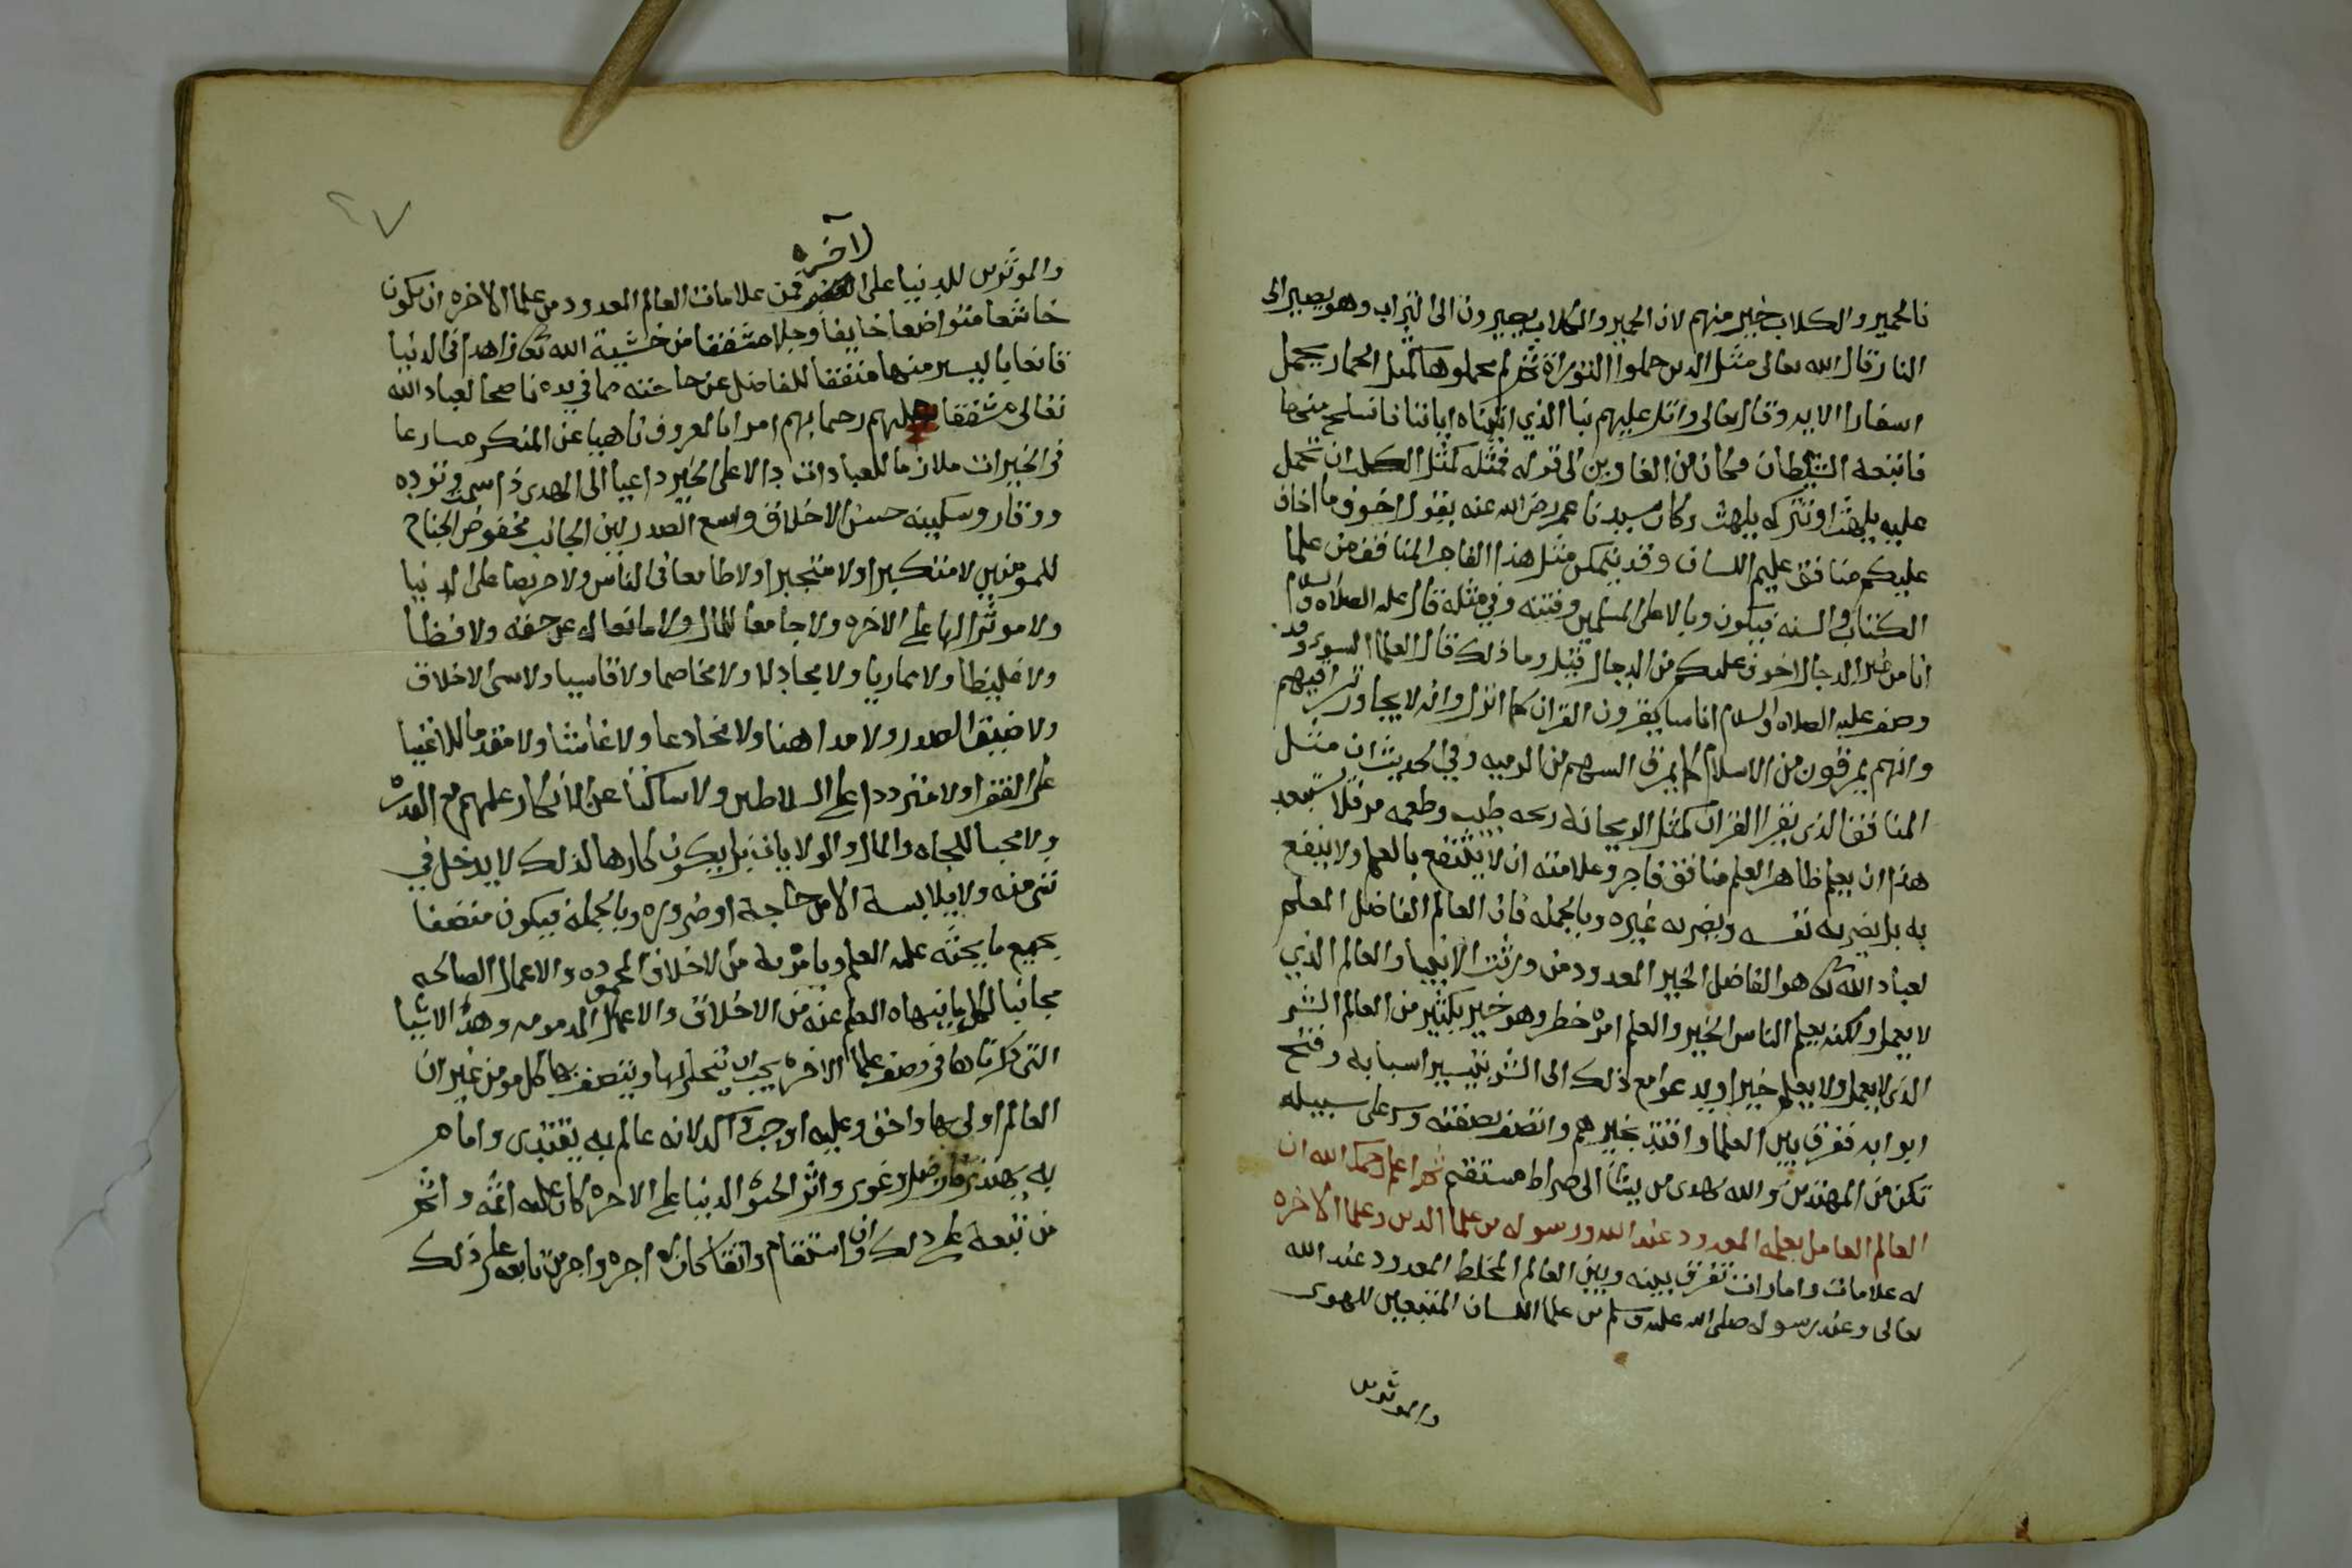 فالحمير والكلاب خير منهم لان الحمير والكلاب يصيرون الى التراب وهو يصير الى
النار قال الله تعالى مثل الذين حملوا التوراة ثم لم يحملوها كمثل الحمار يحمل
اسفارا الايه وقال تعالى واتل عليهم نبا الذي اتيناه اياتنا فانسلخ منها
فاتبعه الشيطان فكان من الغاوين الى قوله فمثله كمثل الكلب ان تحمل
عليه يلهث او تتركه يلهث وكان سيدنا عمر رضي الله عنه يقول اخوف ما اخاف
عليكم منافق عليم اللسان وقد يتمكن مثل هذا الفاجر المنافق من علما
الكتاب والسنه فيكون وبالا على المسلمين وفتنه وفي مثله قال عليه الصلاه والسلام
انا من غير الدجال اخوف عليكم من الدجال فقيل وما ذلك قال العلما السوء وقد
وصف عليه الصلاه والسلام اناسا يقرون القران كما انزل وانه لا يجاوز تراقيهم
وانهم يمرقون من الاسلام كما يمرق السهم من الرميه وفي الحديث ان مثل
المنافق الذي يقرا القران كمثل الريحانة ريحه طيب وطعمه مر فلا يستبعد
هذا ان يعلم ظاهر العلم منافق فاجر وعلامته ان لا ينتفع بالعلم ولا ينفع
به بل يضر به نفسه ويضر به غيره وبالجمله فان العالم الفاضل المعلم
لعباد الله تعالى هو الفاضل الخير المعدود من ورثت الانبيا والعالم الذي
لا يعمل ولكنه يعلم الناس الخير والعلم امره خطر وهو خير بكثير من العالم الشر
الذي لا يعمل ولا يعلم خيرا ويدعوا مع ذلك الى الشر بتيسير اسبابه وفتح
ابوابه ففرق بين العلما واقتد بخيرهم واتصف بصفته وسر على سبيله
تكن من المهتدين والله يهدي من يشا الى صراط مستقيم ثم اعلم رحمك الله ان
العالم العامل بعلمه المعدود عند الله ورسوله من علما الدين وعلما الاخره
له علامات وامارات تفرق بينه وبين العالم المخلط المعدود عند الله
تعالى وعند رسوله صلى الله عليه وسلم من علما اللسان المتبعين للهوى
والموثرين
٢٧
لاخره
والموثرين للدنيا على فمن علامات العالم المعدود من علما الاخره ان يكون
خاشعا متواضعا خايفا وجلا مشفقا من خشية الله تعالى زاهدا في الدنيا
قانعا باليسير منها منفقا للفاضل عن حاجته مما في يده ناصحا لعباد الله
تعالى مشفقا عليهم رحيما بهم امرا بالمعروف ناهيا عن المنكر مسارعا
في الخيرات ملازما للعبادات دالا على الخير داعيا الى الهدى ذا سمت وتوده
ووقار وسكينه حسن الاخلاق واسع الصدر لين الجانب مخفوض الجناح
للمومنين لا متكبرا ولا متجبرا ولا طامعا في الناس ولا حريصا على الدنيا
ولا موثرا لها على الاخره ولا جامعا للمال ولا مانعا له عن حقه ولا فظا
ولا غليظا ولا مماريا ولا مجادلا ولا مخاصما ولا قاسيا ولا سي الاخلاق
ولا ضيق الصدر ولا مداهنا ولا مخادعا ولا غاشا ولا مقدما للاغنيا
على الفقرا ولا مترددا على السلاطين ولا ساكتا عن الانكار عليهم مع القدره
ولا محبا للجاه والمال والولايات بل يكون كارها لذلك لا يدخل في
شي منه ولا يلابسه الا من حاجة او ضروره وبالجمله فيكون متصفا
بجميع ما يحثه عليه العلم ويامره به من الاخلاق المحموده والاعمال الصالحه
مجانبا لكل ما ينهاه العلم عنه من الاخلاق والاعمال المذمومه وهذه الاشيا
التي ذكرناها في وصف علما الاخره يجب ان يتحلى بها ويتصف بها كل مومن غير ان
العالم اولى بها واحق وعليه اوجب واكد لانه عالم به يقتدى وامام
به يهتدى فان ضل وغوى واثر الحيوة الدنيا على الاخره كان عليه اثمه واثم
من تبعه على ذلك وان استقام واتقا كان له اجره واجر من تابعه على ذلك